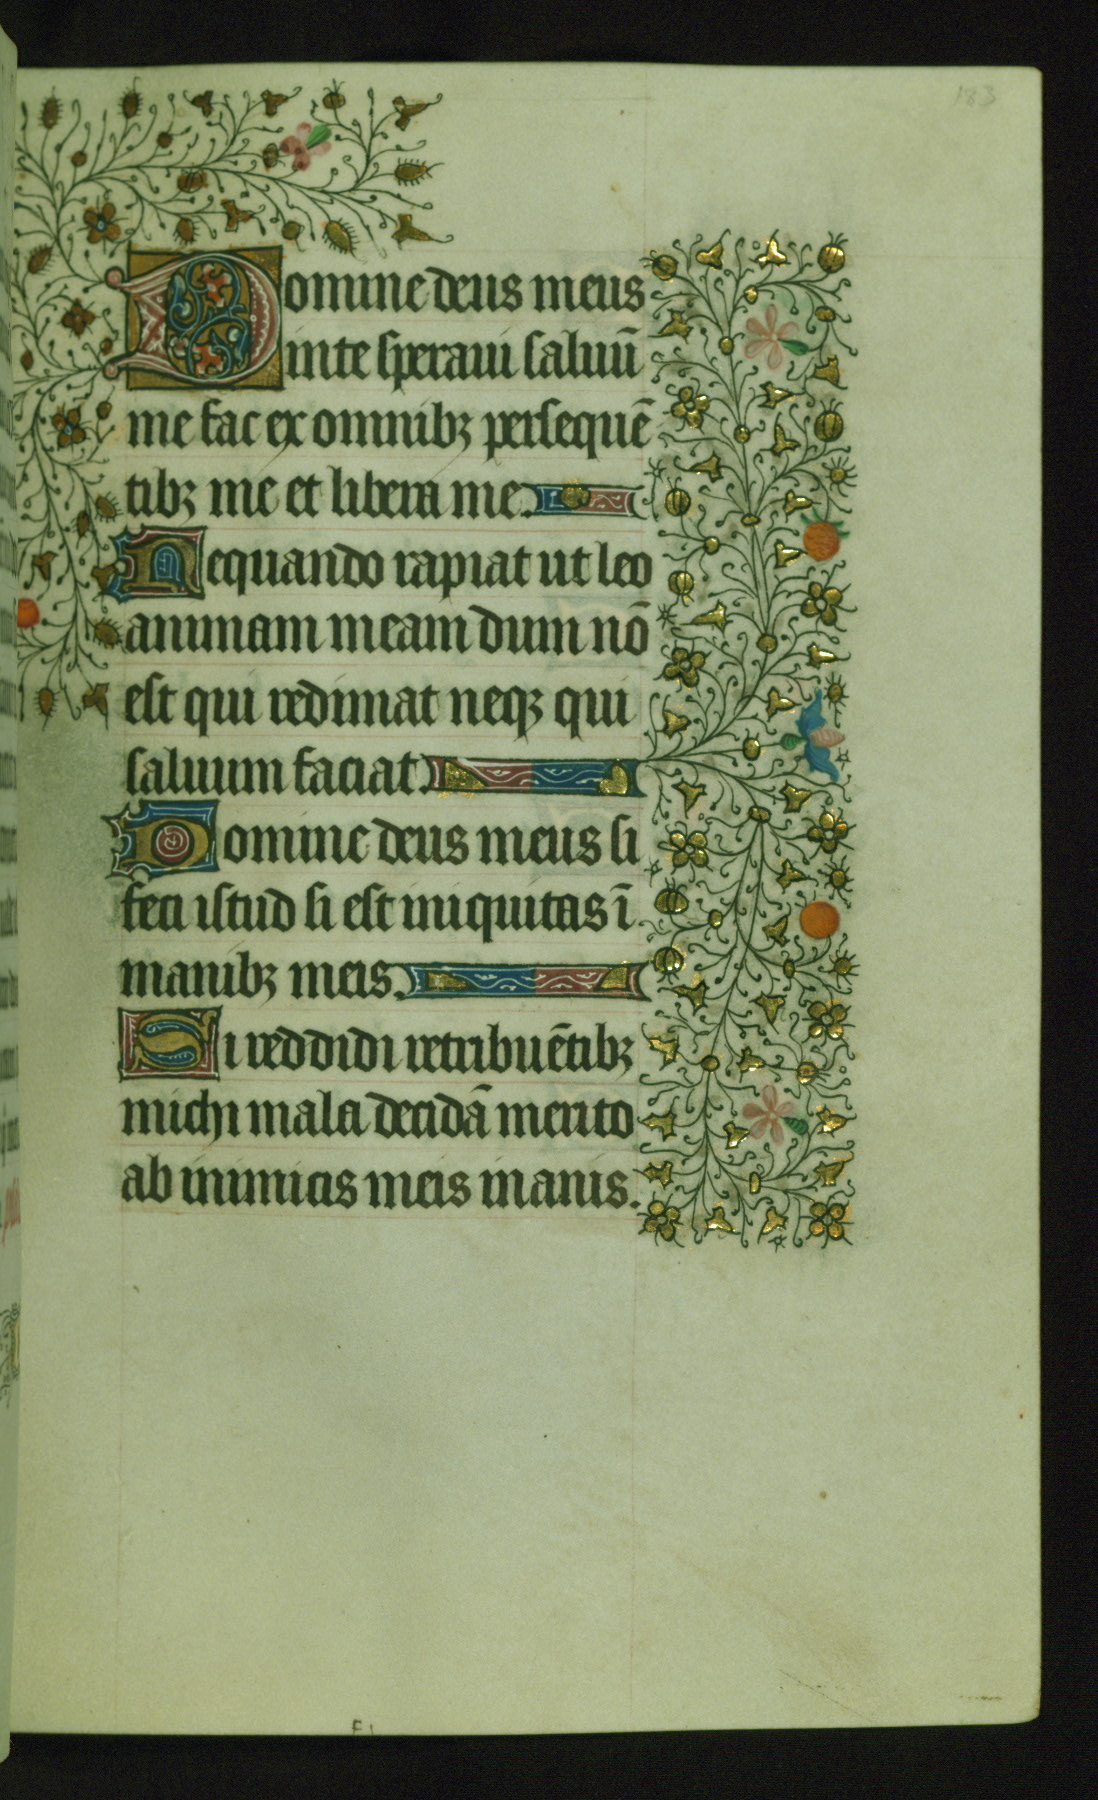 183
Domine deus meus
in te speraui saluū
me fac ex omnibꝫ persequē
tibꝫ me et libera me.
Nequando rapiat ut leo
animam meam dum nō
est qui redimat neqꝫ qui
saluum faciat.
Domine deus meus si
feci istud si est iniquitas ī
manibꝫ meis.
Si reddidi retribuētibꝫ
michi mala decidā merito
ab inimicis meis inanis.